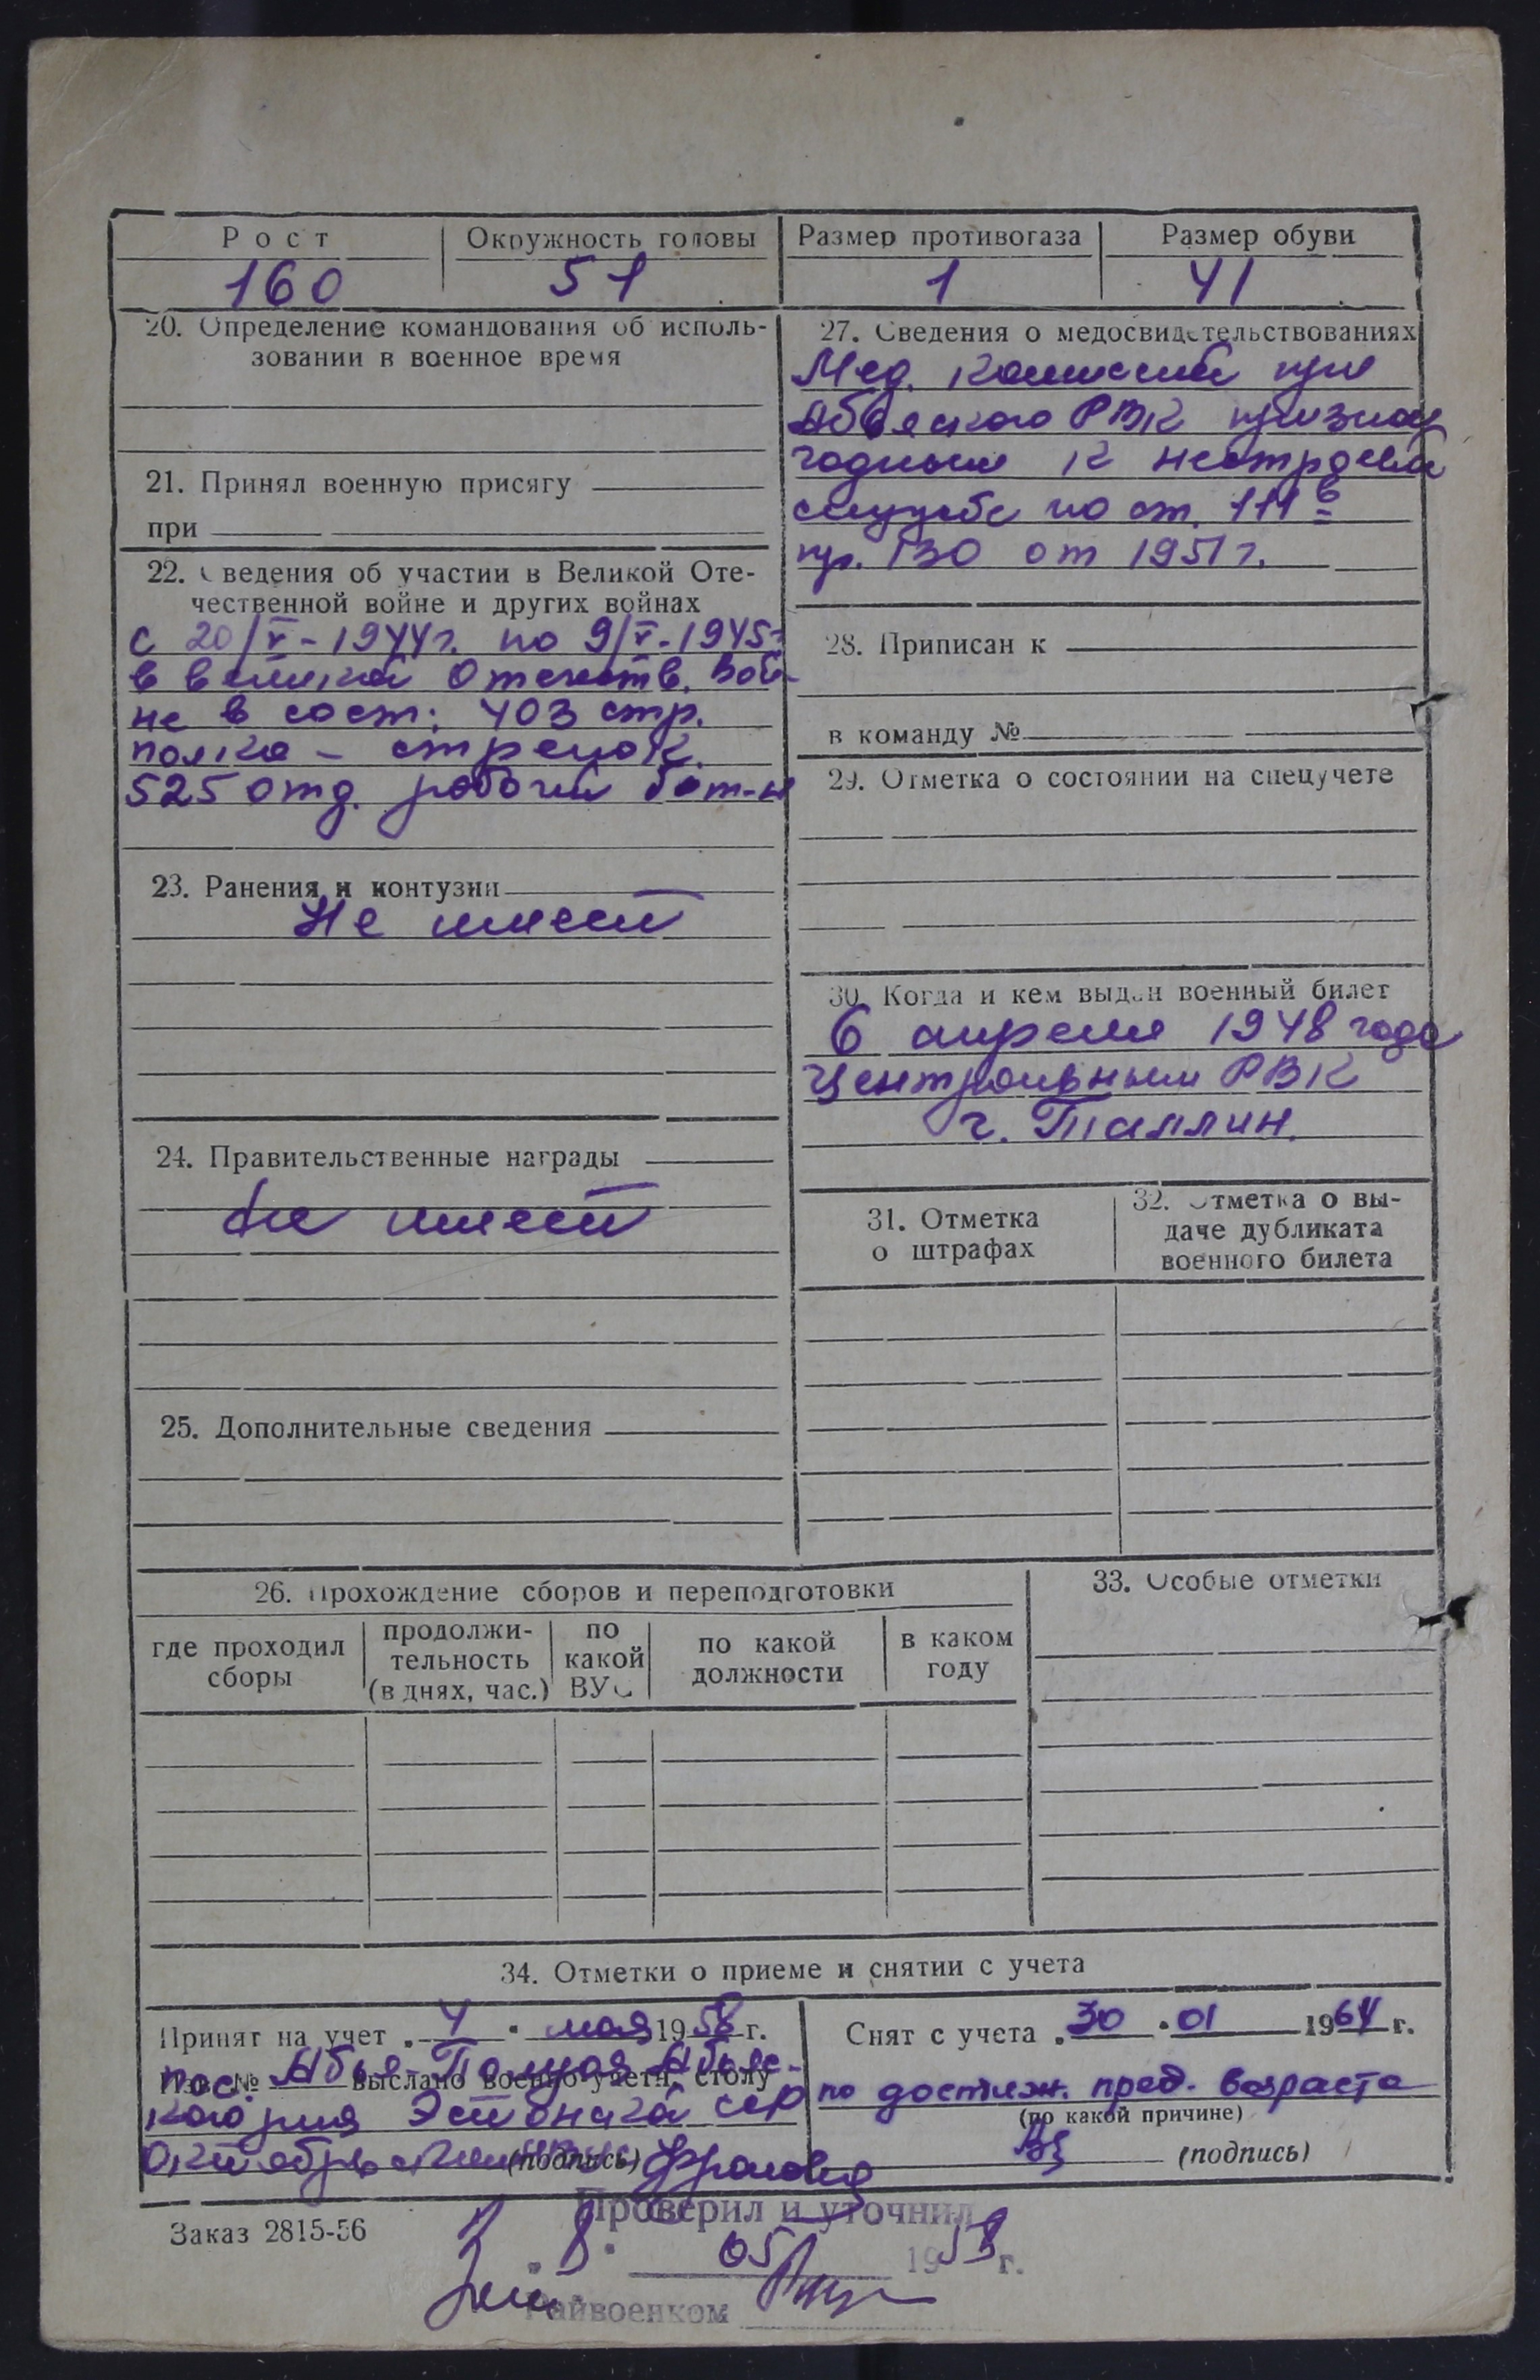 Рост
Окружность головы
Размер противогаза
Размер обуви
160
51
1
41
20. Определение командования об исполь-
зовании в военное время
21. Принял военную присягу
при
22. Сведения об участии в Великой Оте-
чественной войне и других войнах
с 20/V-1944г. по 9/V-1945г
в великой Отечеств. вой-
не в сост: 403 стр.
полка - стрелок.
525 отд. рабочий бат-н
23. Ранения и контузии
Не имеет
24. Правительственные награды
Не имеет
25. Дополнительные сведения
27. Сведения о медосвидетельствованиях
Мед. комиссией при
Абьяского РВК признан
годным к нестроевой
службе по ст. 111 в
пр. 130 от 1951 г.
28. Приписан к
в команду №
29. Отметка о состоянии на спецучете
30. Когда и кем выдан военный билет
6 апреля 1948 года
Центральным РВК
г. Таллин.
31. Отметка
о штрафах
32. Отметка о вы-
даче дубликата
военного билета
26. Прохождение сборов и переподготовки
где проходил
сборы
продолжи-
тельность
(в днях, час.)
по
какой
ВУС
по какой
должности
в каком
году
33. Особые отметки
34. Отметки о приеме и снятии с учета
Принят на учет „4" мая 1958 г.
Изв. № выслано военно-учетн. столу
пос. Абья-Палуоя Абьяс-
кого р-на Эстонской ССР
(подпись)
Снят с учета „30" 01 1964 г.
по достиж. пред. возраста
(по какой причине)
(подпись)
Заказ 2815-56
Проверил и уточнил
„8" 05 1958 г.
Райвоенком